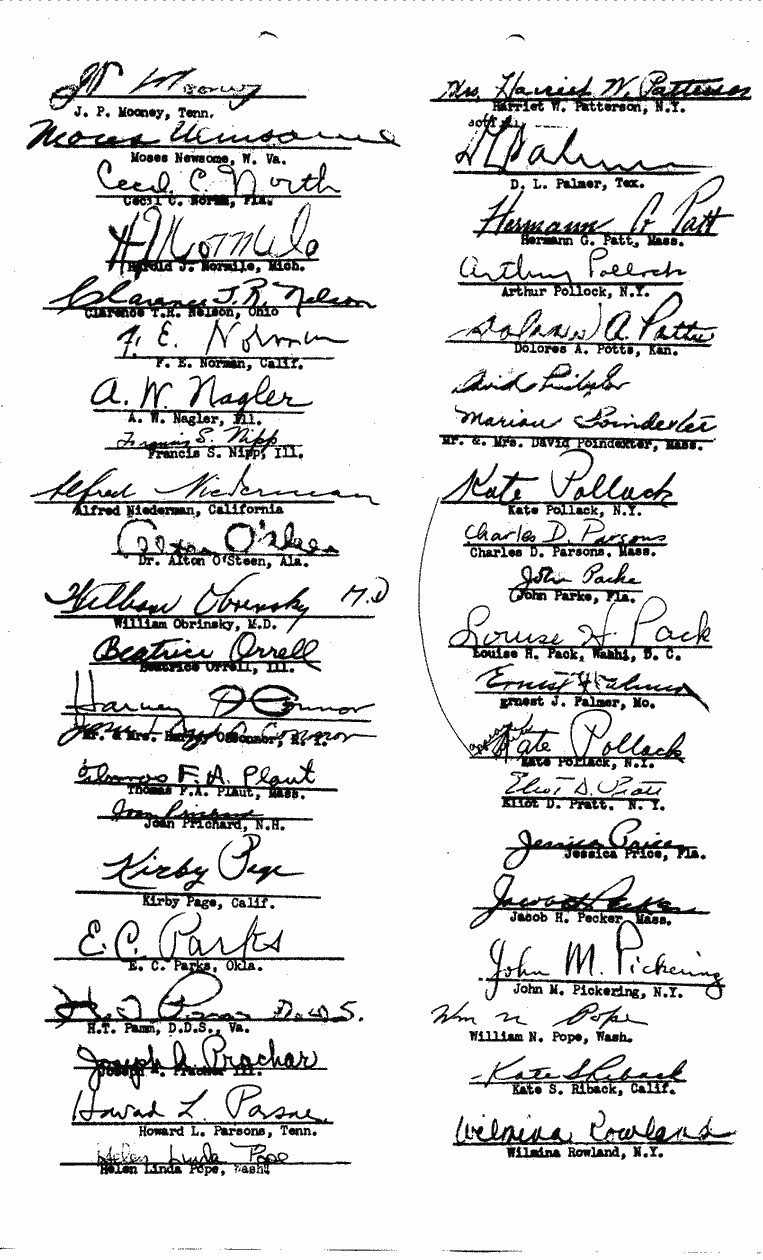 J P Mooney
J. P. Mooney, Tenn.
Moses Newsome
Moses Newsome, W. Va.
Cecil C. North
Cecil C. North, Fla.
H J Normile
Harold J. Normile, Mich.
Clarence T.R. Nelson
Clarence T.R. Nelson, Ohio
F. E. Norman
F. E. Norman, Calif.
A. W. Nagler
A. W. Nagler, Ill.
Francis S. Nipp
Francis S. Nipp, Ill.
Alfred Niederman
Alfred Niederman, California
Alton O'Steen
Dr. Alton O'Steen, Ala.
William Obrinsky M.D
William Obrinsky, M.D.
Beatrice Orrell
Beatrice Orrell, Ill.
Harvey O'Connor
Jessie O'Connor
Mr. & Mrs. Harvey O'Connor, R. I.
Thomas F.A. Plaut
Thomas F.A. Plaut, Mass.
Joan Prichard
Joan Prichard, N.H.
Kirby Page
Kirby Page, Calif.
E. C. Parks
E. C. Parks, Okla.
H. T. Pamm D.D.S.
H.T. Pamm, D.D.S., Va.
Joseph A. Prachar
Joseph A. Prachar Ill.
Howard L. Parsons
Howard L. Parsons, Tenn.
Helen Linda Pope
Helen Linda Pope, Wash.
Mrs. Harriet W. Patterson
Harriet W. Patterson, N.Y.
D L Palmer
D. L. Palmer, Tex.
Hermann G Patt
Hermann G. Patt, Mass.
Arthur Pollock
Arthur Pollock, N.Y.
Dolores A. Potts
Dolores A. Potts, Kan.
David Poindexter
Marian Poindexter
Mr. & Mrs. David Poindexter, Mass.
Kate Pollack
Kate Pollack, N.Y.
Charles D. Parsons
Charles D. Parsons, Mass.
John Parke
John Parke, Fla.
Louise H. Pack
Louise H. Pack, Washi, D. C.
Ernest J Palmer
Ernest J. Palmer, Mo.
Kate Pollack
Kate Pollack, N.Y.
Eliot D. Pratt
Eliot D. Pratt. N. Y.
Jessica Price
Jessica Price, Fla.
Jacob H Pecker
Jacob H. Pecker, Mass.
John M. Pickering
John M. Pickering, N.Y.
Wm N Pope
William N. Pope, Wash.
Kate S Riback
Kate S. Riback, Calif.
Wilmina Rowland
Wilmina Rowland, N.Y.